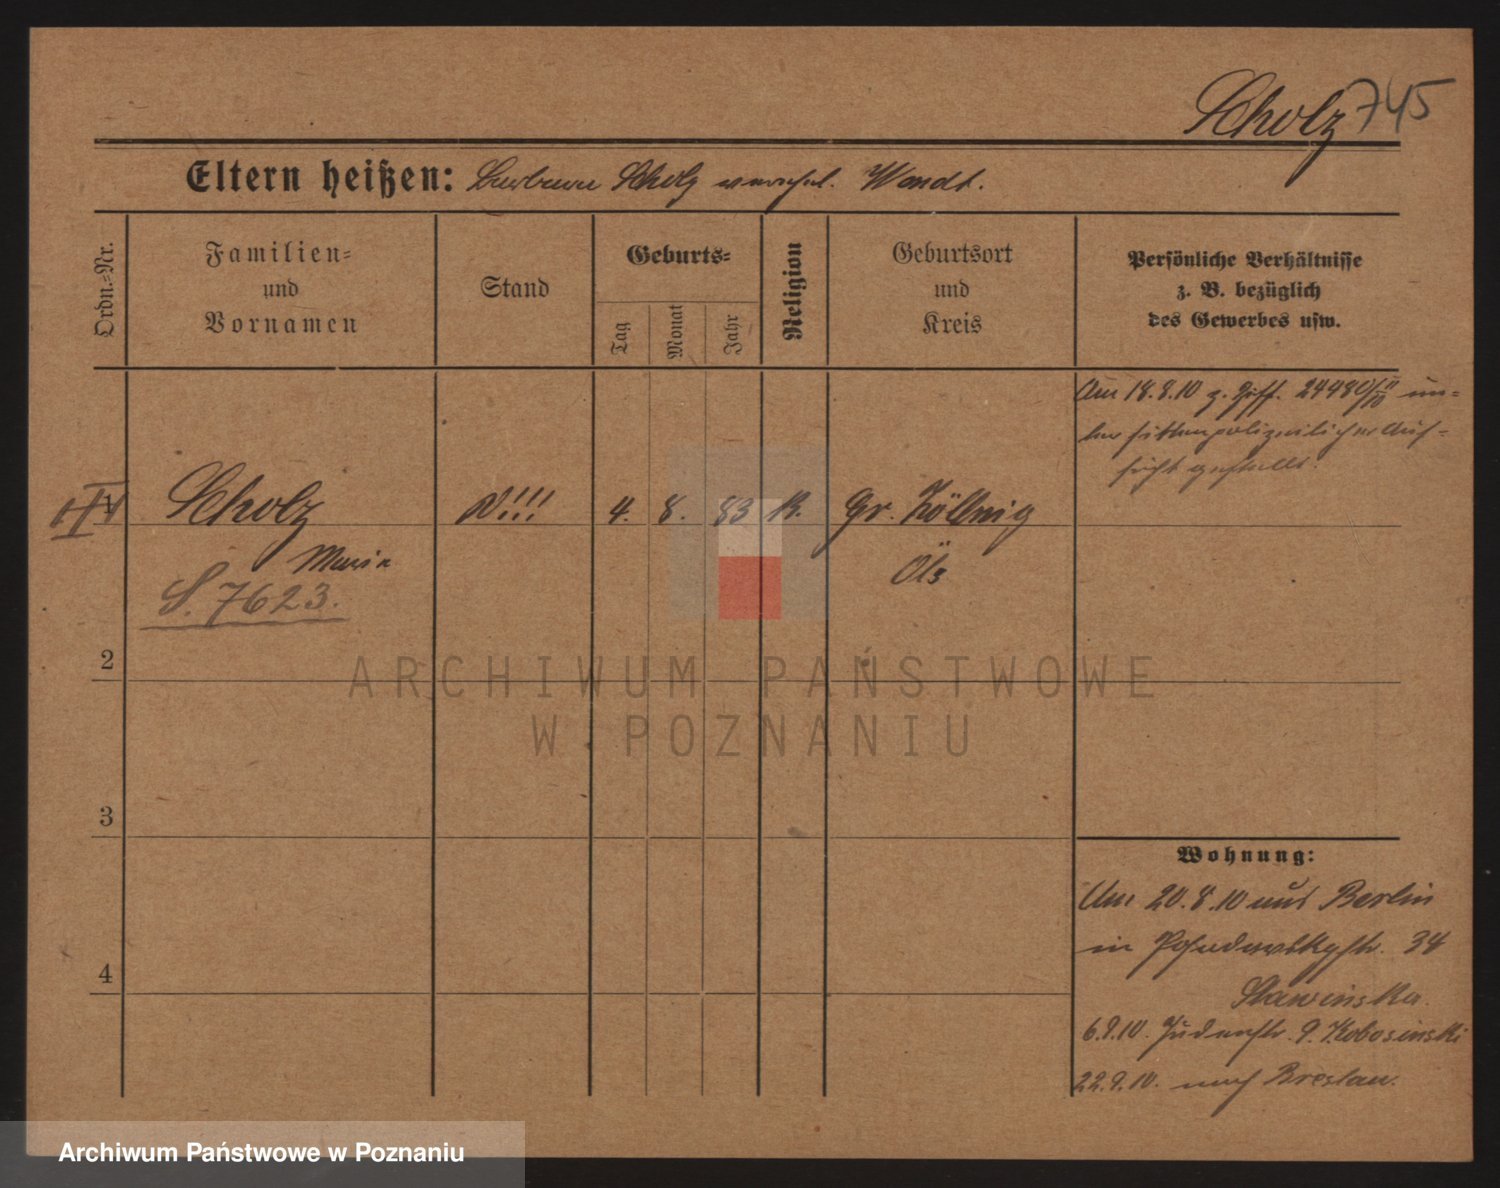 Scholz 745
Eltern heißen: Barbara Scholz verehel. Wendt.
Ordn.-Nr.
Familien-
und
Vornamen
Stand
Geburts-
Tag
Monat
Jahr
Religion
Geburtsort
und
Kreis
Persönliche Verhältnisse
z. B. bezüglich
des Gewerbes usw.
Am 18.8.10 z. Ziff. 24480/10 II un-
ter sittenpolizeilicher Auf-
sicht gestellt.
1
Scholz
!!! 4. 8. 83 K. Gr. Zöllnig
Maria
Öls
S. 7623.
2
3
4
Wohnung:
Am 20.8.10 aus Berlin
in Posadowskystr. 34
Slawinska.
6.9.10. Judenstr. 9. Kobosinski
22.9.10. nach Breslau.
ARCHIWUM PAŃSTWOWE
W POZNANIU
Archiwum Państwowe w Poznaniu